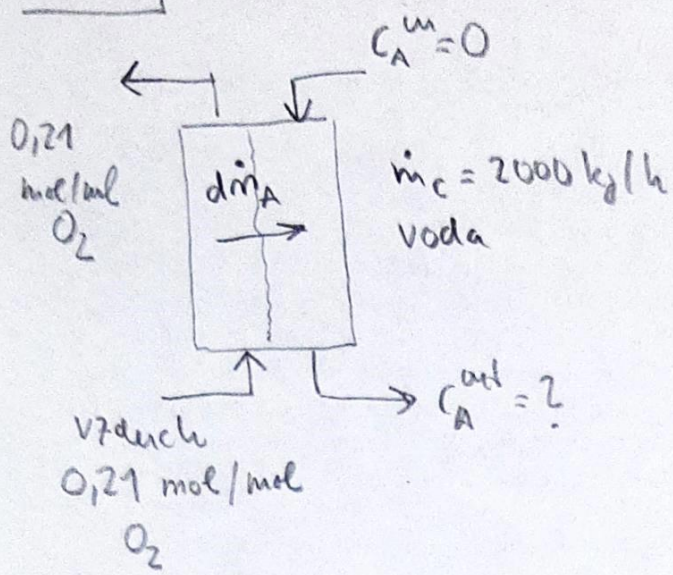 C_A^in = 0
0,21
mol/mol
O₂
dṁ_A
ṁ_C = 2000 kg/h
voda
C_A^out = ?
vzduch
0,21 mol/mol
O₂